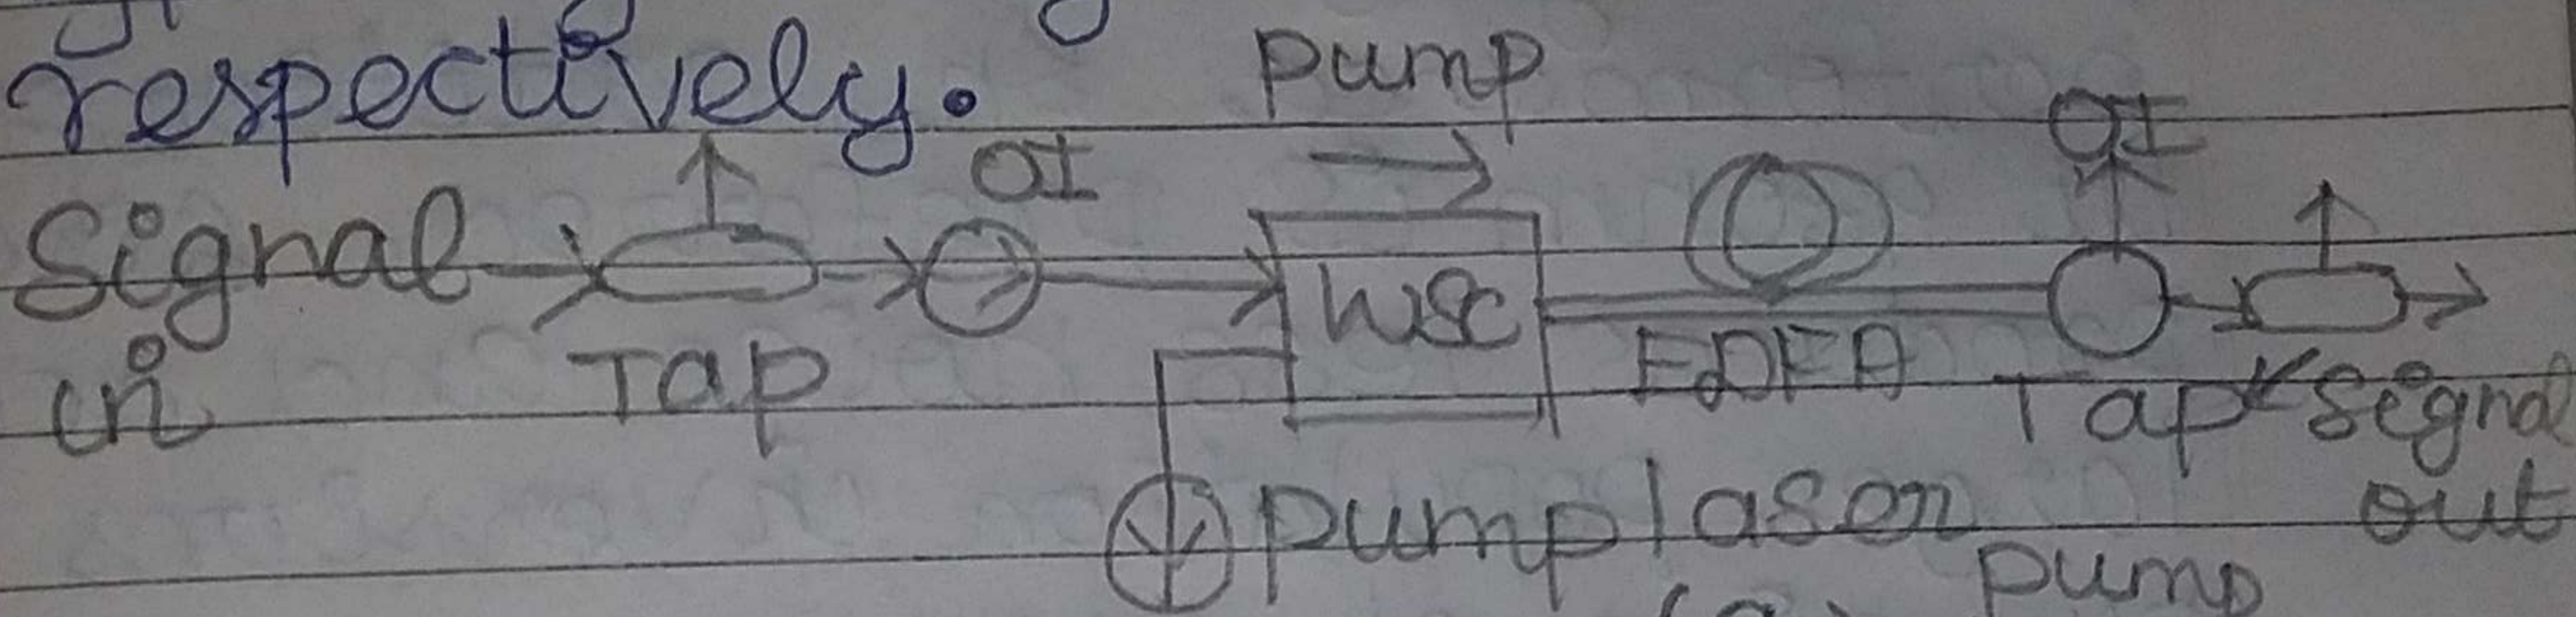 respectively.
pump
OI
OI
Signal
in
WSC
Tap
EDFA
Tap
Signal
out
pump laser
(a)
pump